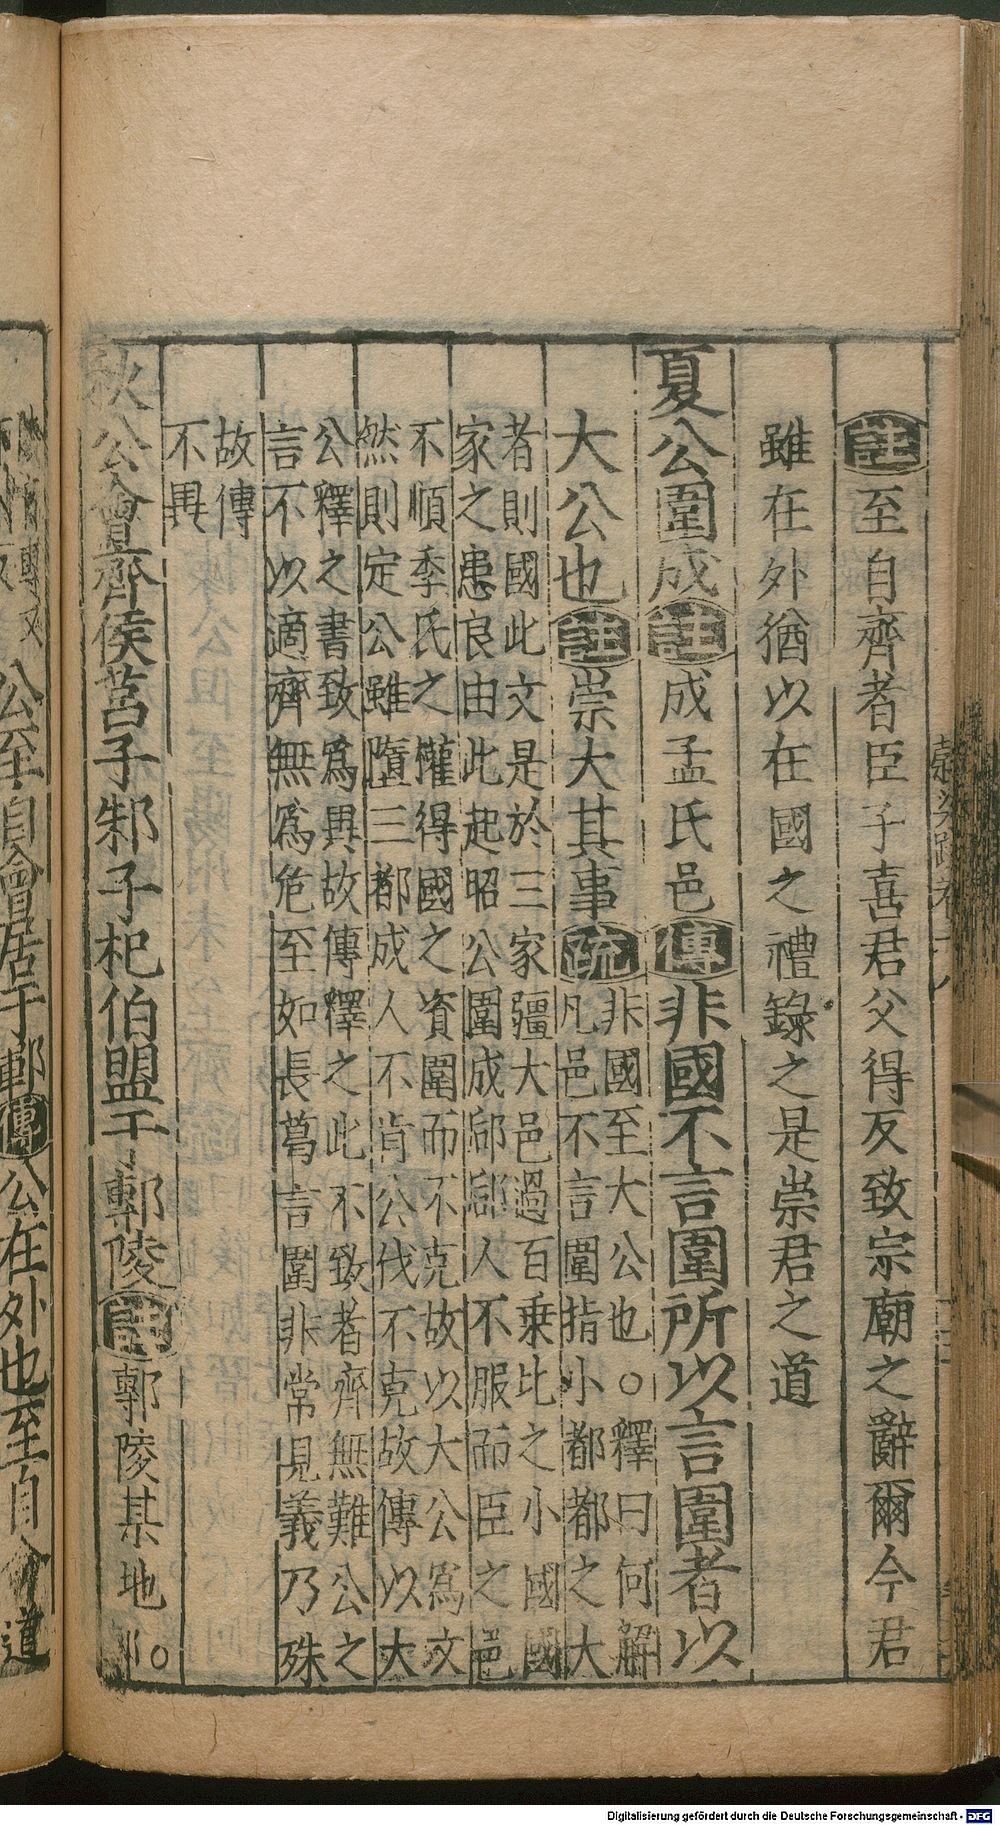 註至自齊者臣子喜君父得反致宗廟之辭爾今君
雖在外猶以在國之禮錄之是崇君之道
夏公圍成註成孟氏邑傳非國不言圍所以言圍者以
大公也註崇大其事疏
非國至大公也○釋曰何解
凡邑不言圍指小都都之大
者則國此文是於三家疆大邑過百乗比之小國國
家之患良由此起昭公圍成郈郈人不服而臣之邑
不順季氏之權得國之資圍而不克故以大公爲文
然則定公雖墮三都成人不肯公伐不克故傳以大
公釋之書致爲異故傳釋之此不致者齊無難公之
言不以適齊無爲危至如長葛言圍非常見義乃殊
故傳
不異
秋公會齊侯莒子邾子杞伯盟于鄟陵註鄟陵某地
公至自會居于鄆傳公在外也至自會道
Digitalisierung gefördert durch die Deutsche Forschungsgemeinschaft - DFG